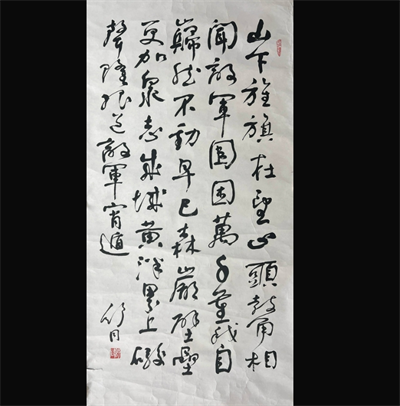 山下旌旗在望山頭鼓角相
聞敵軍圍困萬千重我自
巋然不動早已森嚴壁壘
更加衆志成城黃洋界上礮
聲隆报道敵軍宵遁
舒同